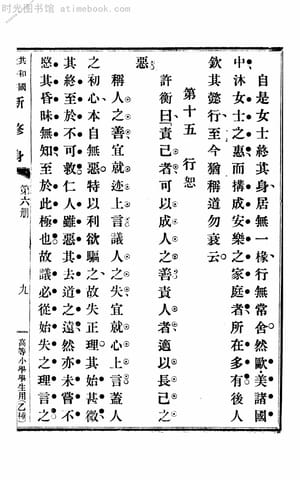 时光图书馆 · atimebook.com
自是女士終其身居無一椽行無常舍然歐美諸國
中沐女士之惠而構成安樂之家庭者所在多有後人
欽其懿行至今猶稱道勿衰云
第十五 行恕
許衡曰責己者可以成人之善責人者適以長己之
惡
稱人之善宜就迹上言議人之失宜就心上言蓋人
之初心本自無惡特以利欲驅之故失正理其始甚微
其終至於不可救仁人雖惡其去道之遠然亦未嘗不
愍其昏昧無知至於此極也故議必從始失之理言之
共和國新修身 第六册 九 高等小學學生用(乙種)
时光图书馆 · atimebook.com